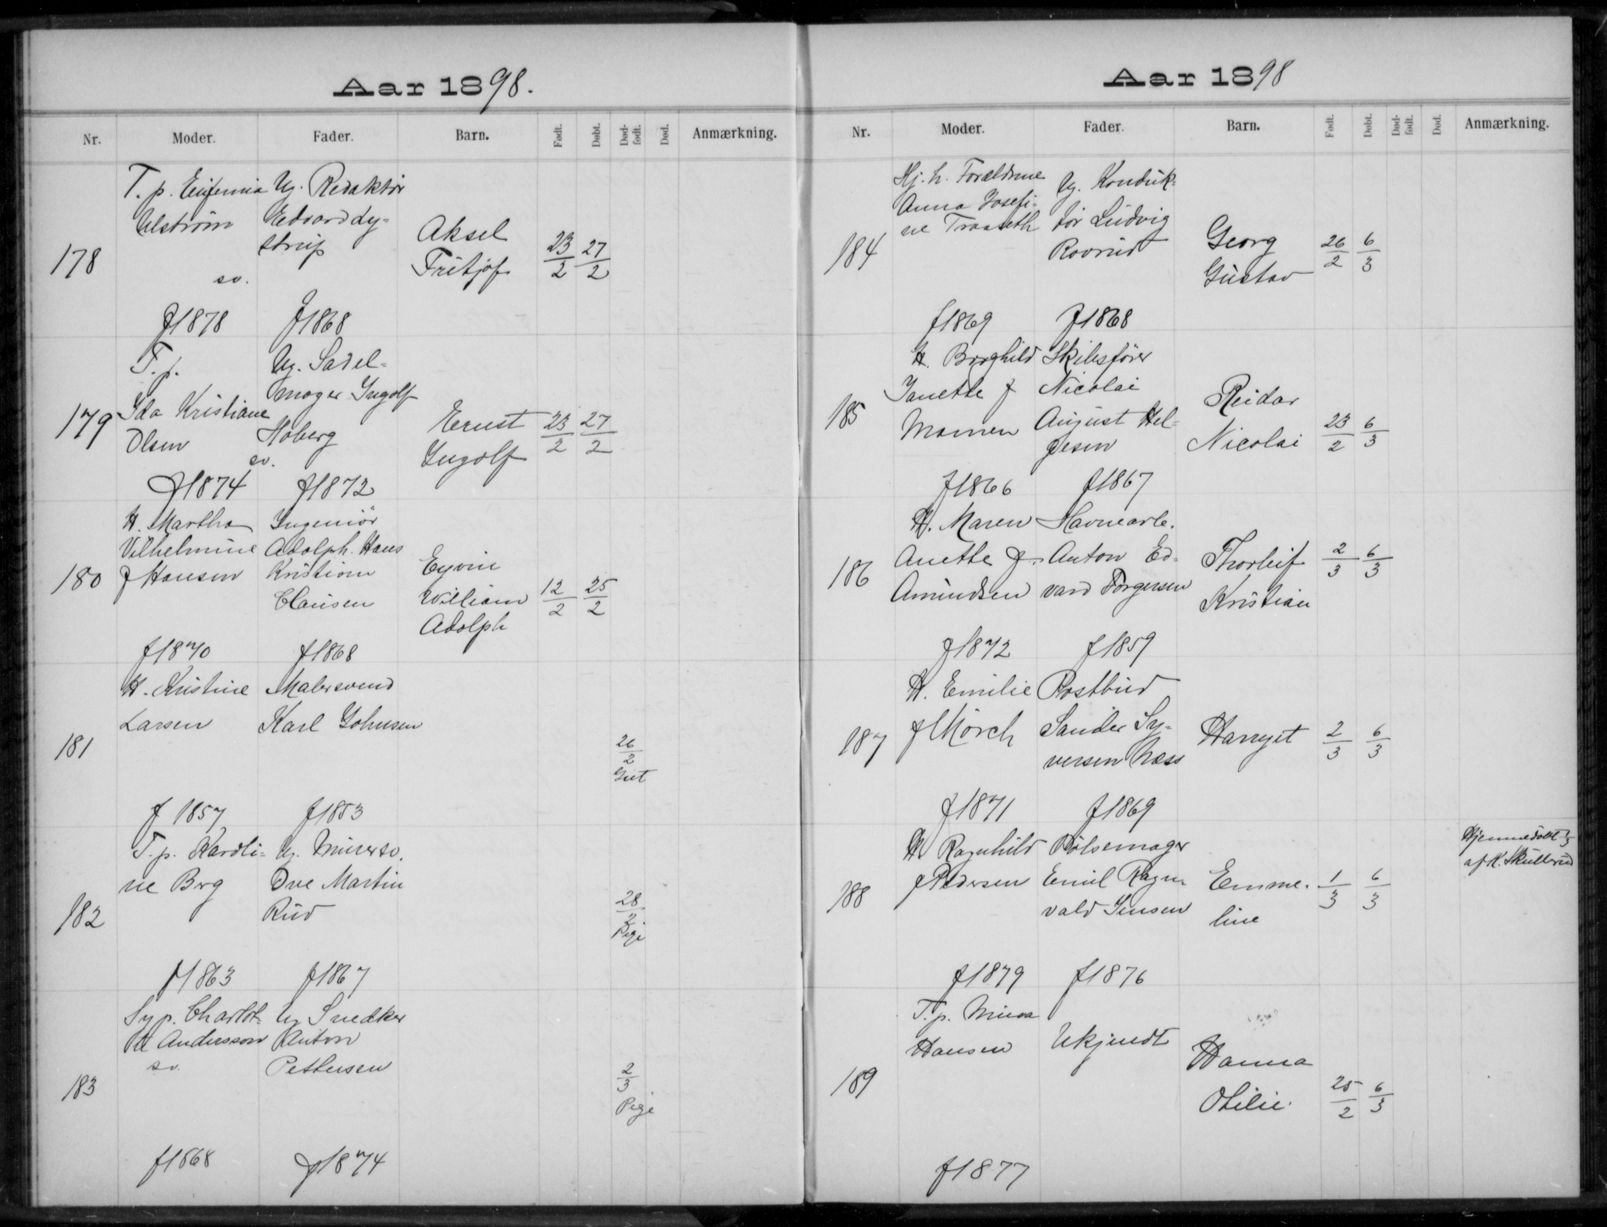 Aar 1898.
Nr. Moder. Fader. Barn. Født. Døbt. Død-født. Død. Anmærkning.
178
T. p. Eufemia
Alström
sv.
f 1878
Ug. Redaktör
Edvard Ly-
strup
f 1868
Aksel
Fritjof
23/2 27/2
179
T. p.
Ida Kristiane
Olsen
sv.
f 1874
Ug. Sadel-
mager Ingolf
Höberg
f 1872
Ernst
Ingolf
23/2 27/2
180
H. Martha
Vilhelmine
f Hansen
f 1870
Ingeniör
Adolph Hans
Kristian
Clausen
f 1868
Eyvin
William
Adolph
12/2 25/2
181
H. Kristine
Larsen
f 1857
Malersvend
Karl Johnsen
f 1853
26/2
Gut
182
T. p. Karoli-
ne Berg
f 1863
Ug. Murersv.
Ove Martin
Rud
f 1867
28/2
Pige
183
Syp. Charlot-
te Andersson
sv.
f 1868
Ug Snedker
Anton
Pettersen
f 1874
2/3
Pige
Aar 1898
Nr. Moder. Fader. Barn. Født. Døbt. Død-født. Død. Anmærkning.
184
Hj. h. Forældrene
Anna Josefi-
ne Traaseth
f 1869
Ug. Konduk-
tör Ludvig
Rovrud
f 1868
Georg
Gustav
26/2 6/3
185
H. Borghild
Janette f
Momen
f 1866
Skibsfører
Nicolai
August Hel-
gesen
f 1867
Reidar
Nicolai
23/2 6/3
186
H. Maren
Anette f.
Amundsen
f 1872
Havnearb.
Anton Ed-
vard Torgersen
f 1859
Thorleif
Kristian
2/3 6/3
187
H. Emilie
f Mörch
f 1871
Postbud
Sander Sy-
versen Næss
f 1869
Harryet
2/3 6/3
188
H. Ragnhild
f Pedersen
f 1879
Pölsemager
Emil Ragn-
vald Jensen
f 1876
Emme-
line
1/3 6/3
Hjemmedöbt 3/3
af H. Skullerud
189
T. p. Minna
Hansen
f 1877
Ukjendt
Hanna
Otilie.
25/2 6/3